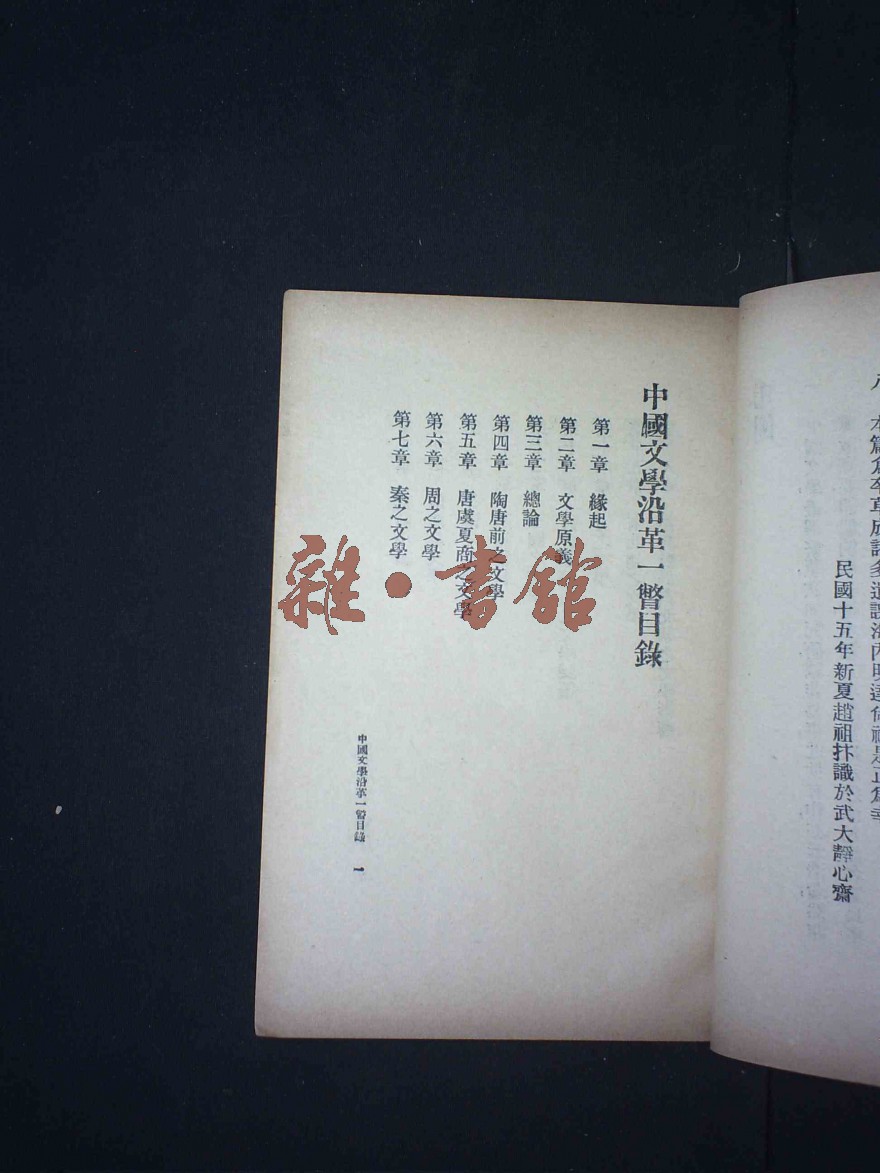 八、本篇倉卒草成諒多遺誤海內明達倘祈是正爲幸
民國十五年新夏趙祖抃識於武大靜心齋
中國文學沿革一瞥目錄
第一章 緣起
第二章 文學原義
第三章 總論
第四章 陶唐前之文學
第五章 唐虞夏商之文學
第六章 周之文學
第七章 秦之文學
中國文學沿革一瞥目錄 一
雜·書館